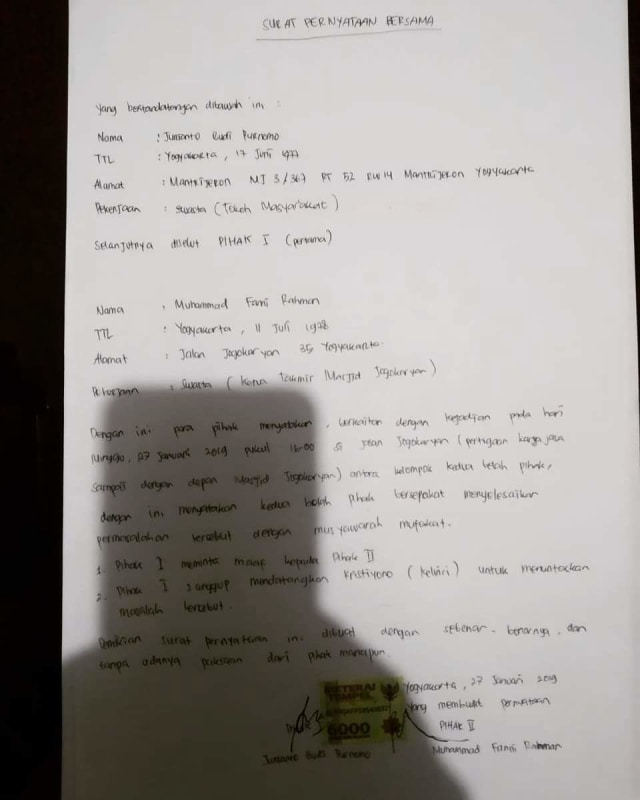 SURAT PERNYATAAN BERSAMA
Yang bertandatangan dibawah ini :
Nama : Jumianto Budi Purnomo
TTL : Yogyakarta, 17 Juli 1977
Alamat : Mantrijeron MJ 3/367 RT 52 RW 14 Mantrijeron Yogyakarta
Pekerjaan : Swasta (Tokoh Masyarakat)
Selanjutnya disebut PIHAK I (pertama)
Nama : Muhammad Fanni Rahman
TTL : Yogyakarta, 11 Juli 1978
Alamat : Jalan Jogokaryan 35 Yogyakarta.
Pekerjaan : Swasta (Ketua Takmir Masjid Jogokaryan)
Dengan ini para pihak menyatakan, berkaitan dengan kejadian pada hari
Minggu, 27 Januari 2019 pukul 16.00 di jalan Jogokaryan (pertigaan
sampai dengan depan Masjid Jogokaryan) antara kelompok kedua belah pihak,
dengan ini menyatakan kedua belah pihak bersepakat menyelesaikan
permasalahan tersebut dengan musyawarah mufakat.
1. Pihak I meminta maaf kepada Pihak II
2. Pihak I sanggup mendatangkan Kristiyono (Kelwiri) untuk menuntaskan
masalah tersebut.
Demikian surat pernyataan ini dibuat dengan sebenar-benarnya, dan
tanpa adanya paksaan dari pihak manapun.
Yogyakarta, 27 Januari 2019
Yang membuat pernyataan
METERAI
TEMPEL
6000
PIHAK II
Budi Purnomo
Muhammad Fanni Rahman